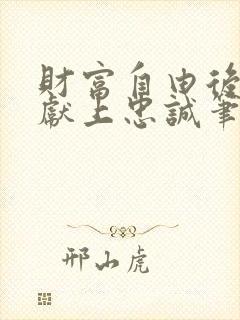 財富自由後
獻上忠誠筆
邢山虎